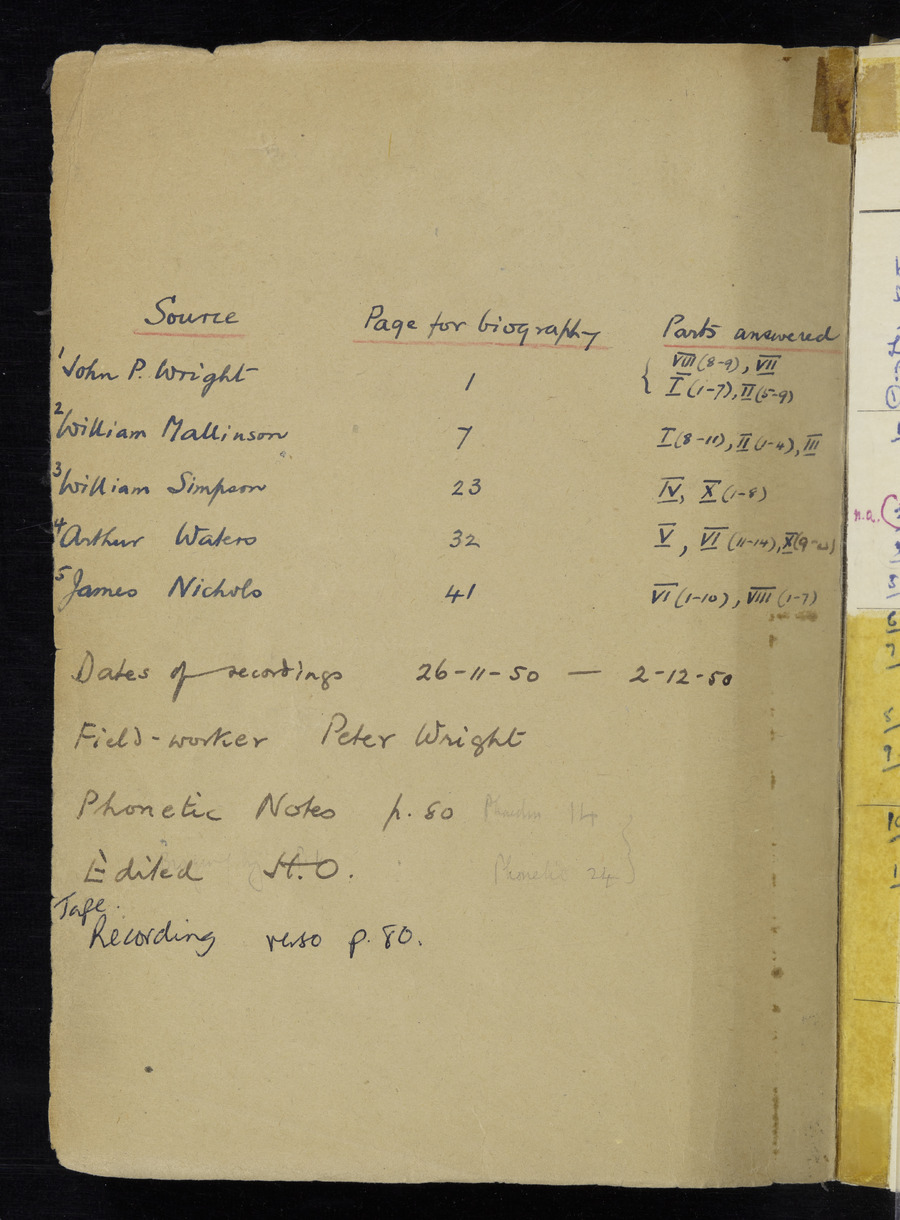 Source Page for biography Parts answered
1 John P. Wright 1 { VIII (8-9), VII
I (1-7), II (5-9)
2 William Mallinson 7 I (8-11), II (1-4), III
3 William Simpson 23 IV, X (1-8)
4 Arthur Waters 32 V, VI (11-14), X (9-
5 James Nichols 41 VI (1-10), VIII (1-7)
Dates of recordings 26-11-50 — 2-12-50
Field-worker Peter Wright
Phonetic Notes p. 80 14
Edited H.O. Phonetic 24
Tape.
Recording verso p. 80.
n.a.